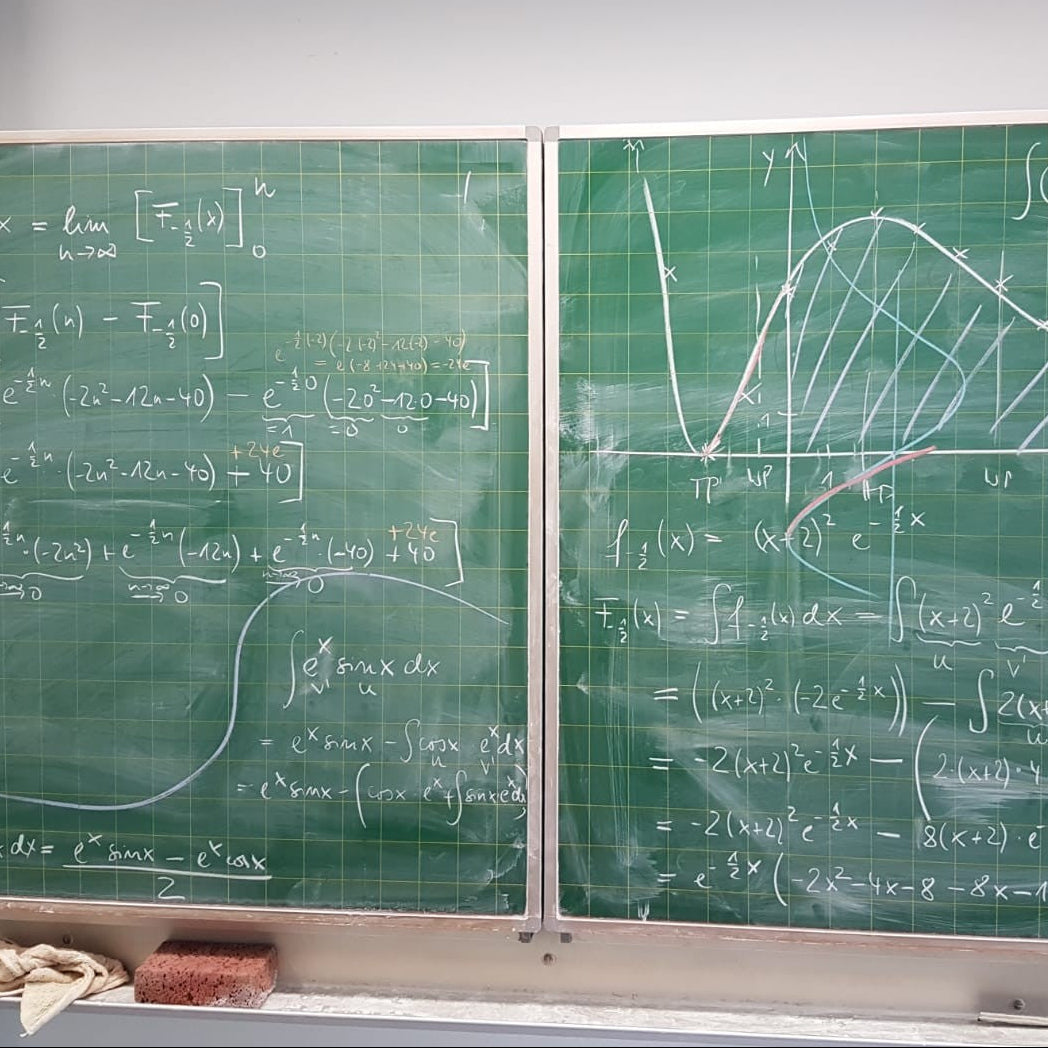 x = lim n→∞ [F_{-1/2}(x)]_0^n
F_{-1/2}(n) − F_{-1/2}(0)]
e^{-1/2(-2)}(-2(-2)²-12(-2)-40)
= e(-8+24+40) = -24e
e^{-1/2n}·(-2n²-12n-40) − e^{-1/2·0}(-2·0²-12·0-40)]
=1 =0 0
+24e
e^{-1/2n}·(-2n²-12n-40) + 40]
+24e
1/2n·(-2n²) + e^{-1/2n}(-12n) + e^{-1/2n}·(-40) + 40]
→0 n→∞ 0 n→∞ 0
∫e^x sinx dx
v' u
= e^x sinx − ∫cosx · e^x dx
u v'
= e^x sinx − (cosx · e^x + ∫sinx e^x dx)
x dx = (e^x sinx − e^x cosx)/2
y
∫(
1
TP WP 1 HP WP
f_{-1/2}(x) = (x+2)² e^{-1/2x}
F_{-1/2}(x) = ∫f_{-1/2}(x) dx = ∫(x+2)² e^{-1/2
u v'
= ((x+2)²·(-2e^{-1/2x})) − ∫2(x+
u
= -2(x+2)²e^{-1/2x} − (2·(x+2)·4
= -2(x+2)²e^{-1/2x} − 8(x+2)·e^-
= e^{-1/2x}(-2x²-4x-8-8x-1